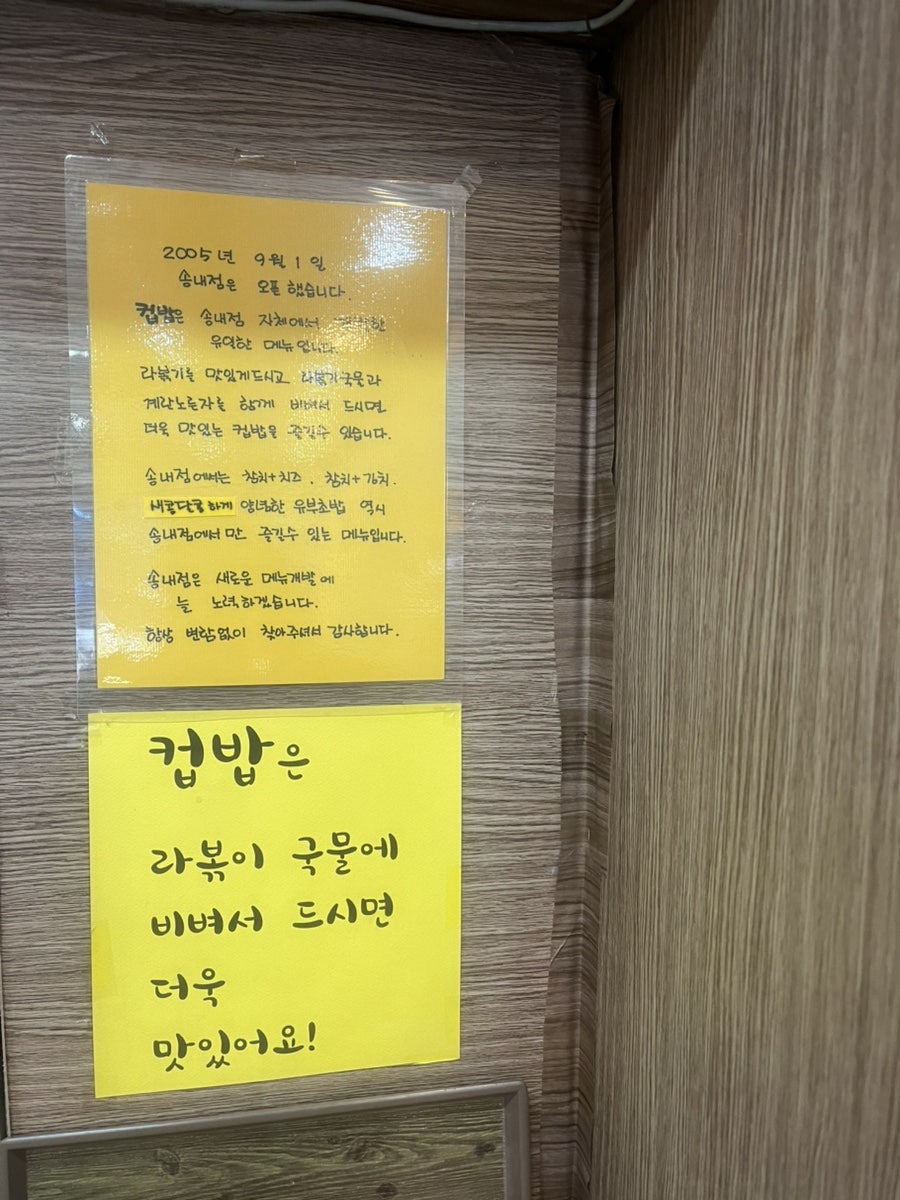 2005년 9월 1일
송내점은 오픈했습니다.
컵밥은 송내점 자체에서
유일한 메뉴입니다.
라볶기를 맛있게드시고 라볶기국물과
계란노른자를 함께 비벼서 드시면
더욱 맛있는 컵밥을 즐길수 있습니다.
송내점에서는 참치+치즈, 참치+김치,
새콤단콤하게 양념한 유부초밥 역시
송내점에서만 즐길수 있는 메뉴입니다.
송내점은 새로운 메뉴개발에
늘 노력하겠습니다.
항상 변함없이 찾아주셔서 감사합니다.
컵밥은
라볶이 국물에
비벼서 드시면
더욱
맛있어요!